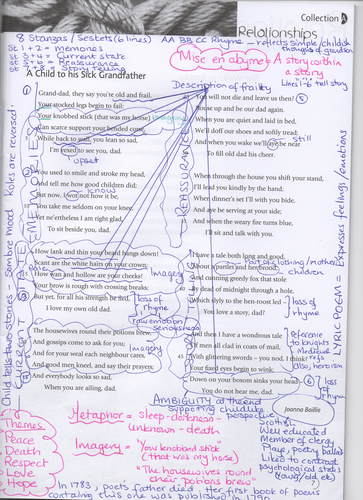 Collection A
Relationships
8 Stanzas / Sestets (6 lines) AA BB CC Rhyme - reflects simple/childish
thoughts of grandson
St 1 + 2 = Memories
Current state
Reassurance
Story telling
Mise en abyme = A story within
a story
Lines 1-6 tell story
A Child to his Sick Grandfather
Description of frailty
Grand-dad, they say you're old and frail,
Your stocked legs begin to fail:
Your knobbed stick (that was my horse)
Can scarce support your bended corse,
While back to wall, you lean so sad,
I'm vexed to see you, dad.
upset
You used to smile and stroke my head,
And tell me how good children did;
But now, I wot not how it be,
know
You take me seldom on your knee,
Yet ne'ertheless I am right glad,
To sit beside you, dad.
How lank and thin your beard hangs down!
Scant are the white hairs on your crown;
How wan and hollow are your cheeks!
Pale
Imagery
Your brow is rough with crossing breaks;
But yet, for all his strength be fled,
I love my own old dad.
loss of
rhyme
seriousness
The housewives round their potions brew,
And gossips come to ask for you;
Imagery
And for your weal each neighbour cares,
And good men kneel, and say their prayers,
And everybody looks so sad,
When you are ailing, dad.
You will not die and leave us then?
5
Rouse up and be our dad again.
When you are quiet and laid in bed,
We'll doff our shoes and softly tread;
And when you wake we'll aye be near
Still
To fill old dad his cheer.
When through the house you shift your stand,
I'll lead you kindly by the hand;
When dinner's set I'll with you bide,
And aye be serving at your side;
And when the weary fire turns blue,
I'll sit and talk with you.
I have a tale both long and good,
About a partlet and her brood,
Part of clothing/mother
children
And cunning greedy fox that stole
By dead of midnight through a hole,
Which slyly to the hen-roost led –
You love a story, dad?
loss of
rhyme
And then I have a wondrous tale
Of men all clad in coats of mail,
Reference
to knights
With glittering swords – you nod, I think?
Your fixed eyes begin to wink;
also, heroism
Down on your bosom sinks your head –
You do not hear me, dad.
loss
rhyme
Joanna Baillie
REASSURANCE
LYRIC POEM = Expresses feelings/emotions
Child tells two stories - Sombre Mood Roles are reversed
AMBIGUITY at the end
supporting childlike
perspective
Metaphor = Sleep-darkness-
unknown-death
Imagery = "You knobbed stick
(that was my horse)"
"The housewives round
their potions brew"
Scottish
Well educated
Member of clergy
Plays, poetry ballads
Liked to contrast
psychological states
(young/old etc)
Themes
Peace
Death
Respect
Love
Hope
In 1783, poets father died. Her first book of poems
containing this one was published in 1790